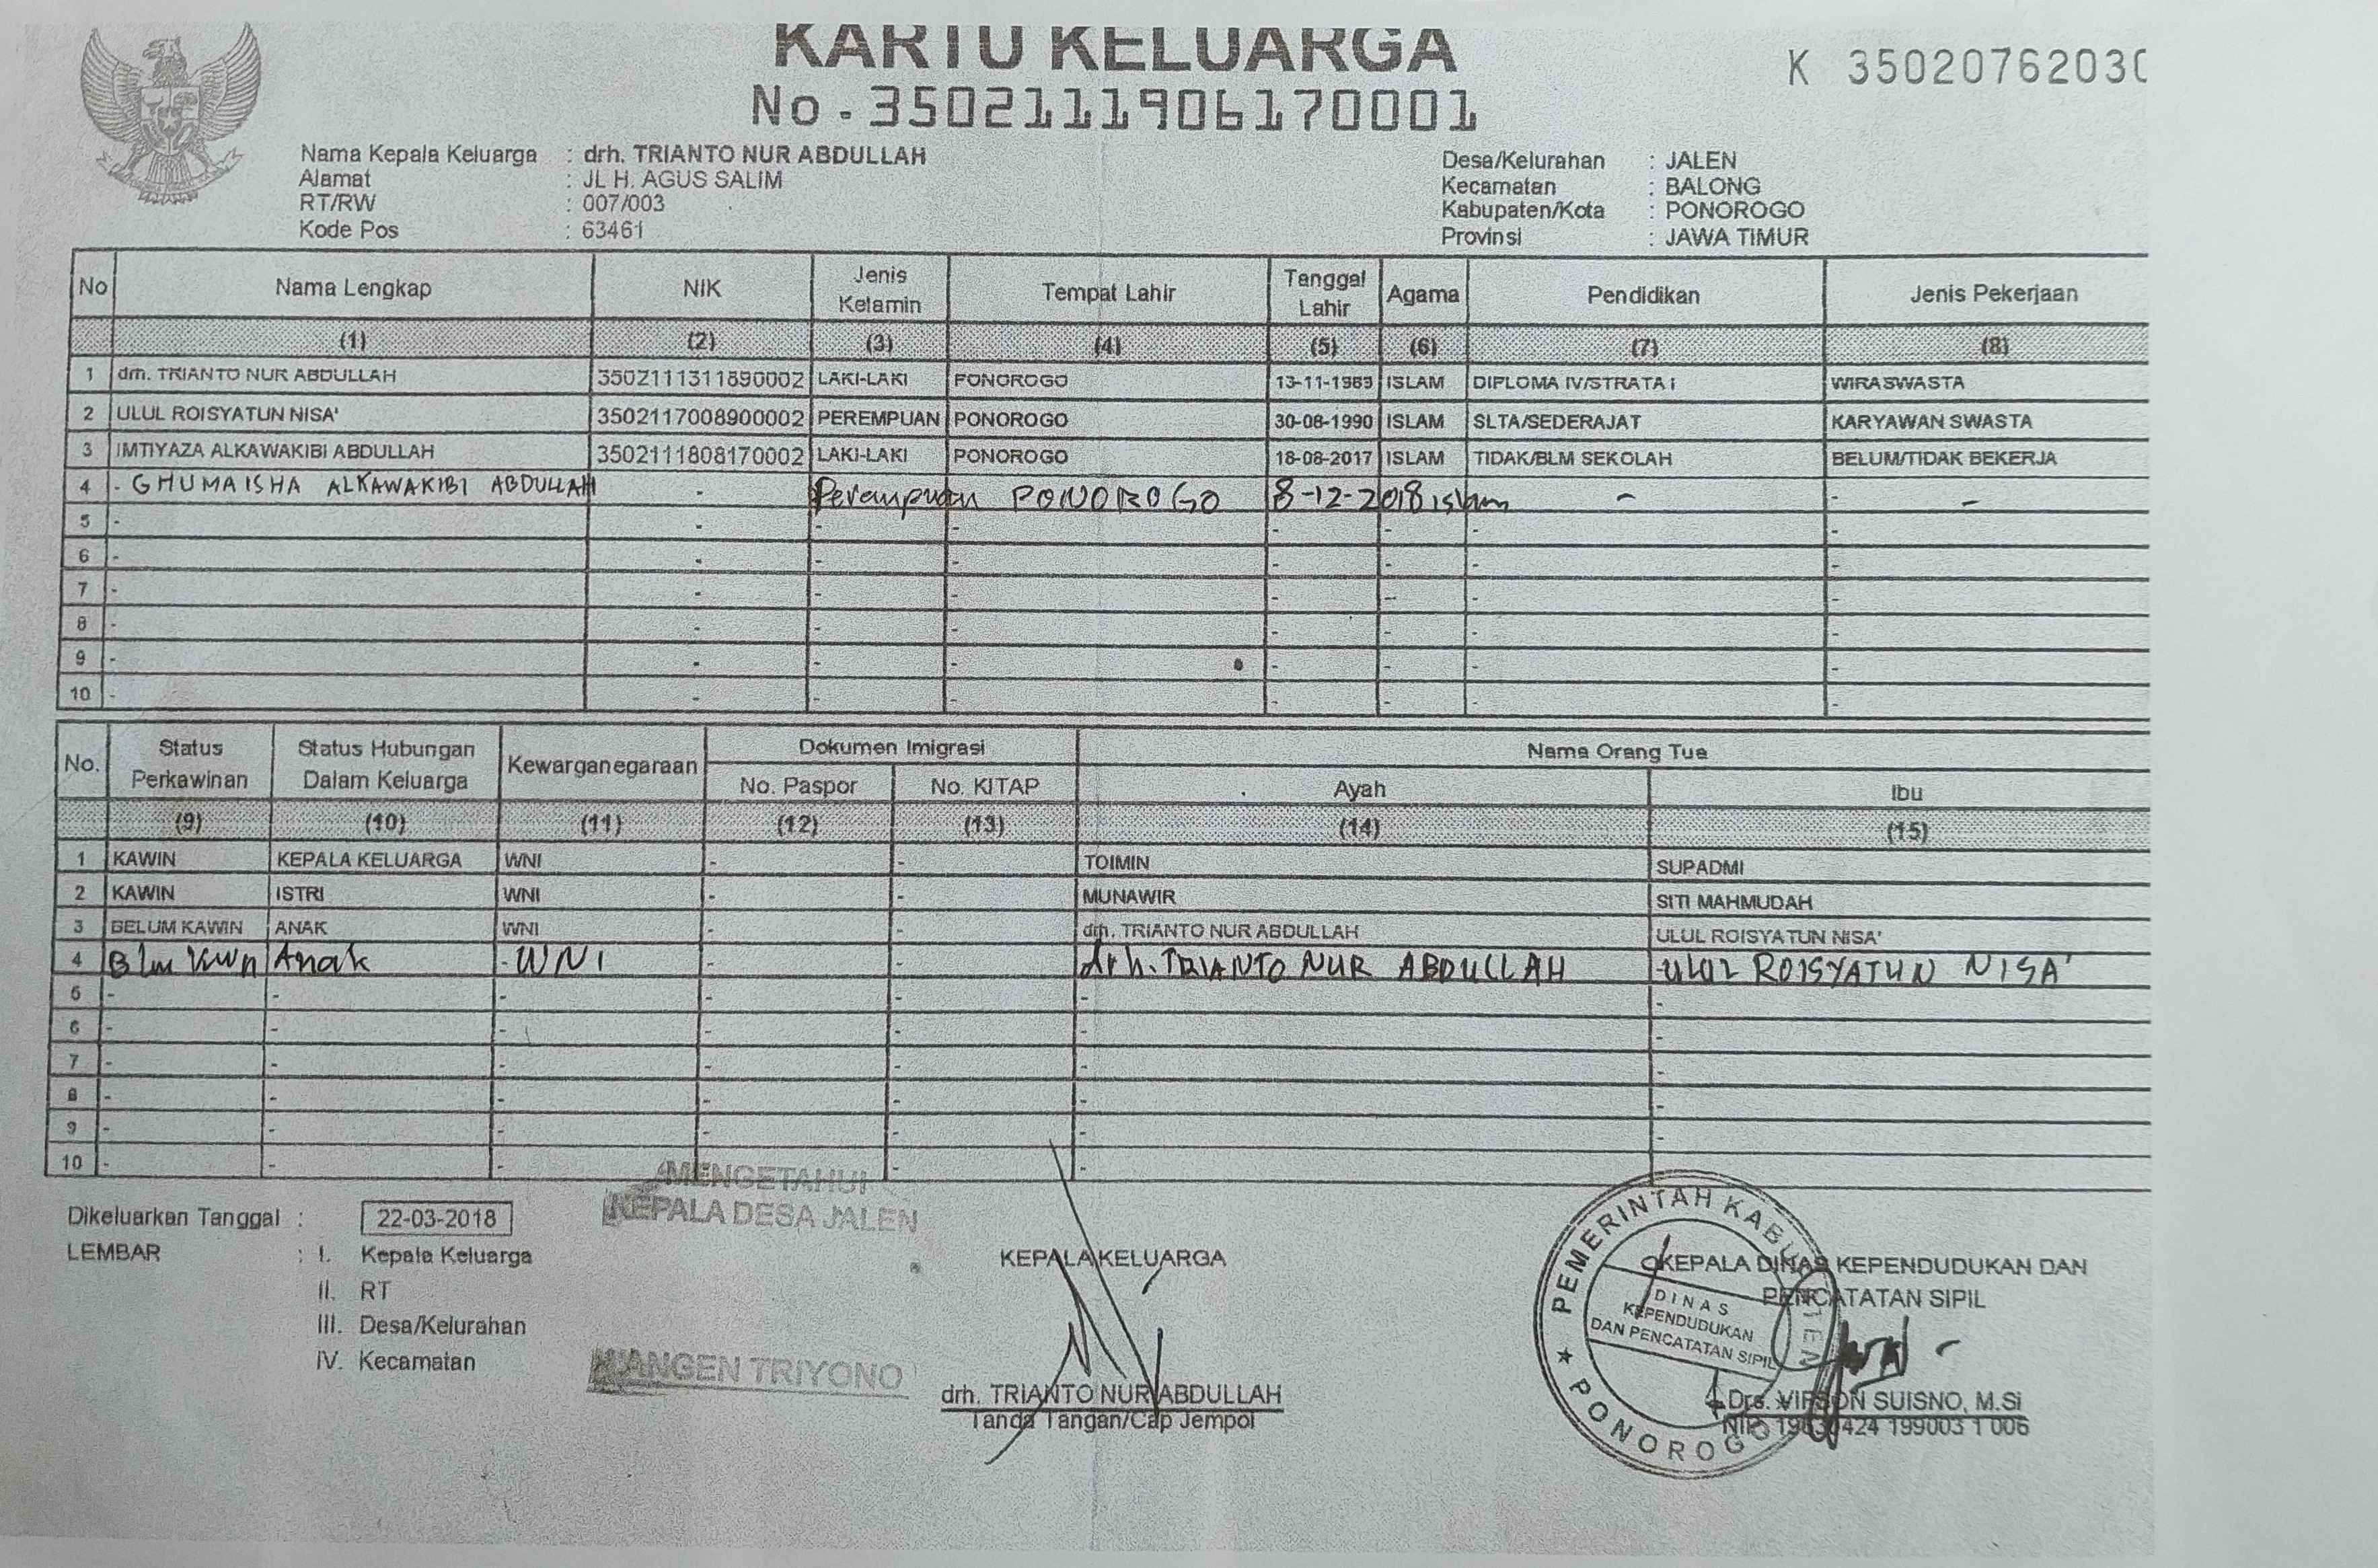 KARTU KELUARGA
No. 3502111906170001
K 35020762030
Nama Kepala Keluarga : drh. TRIANTO NUR ABDULLAH
Alamat : JL H. AGUS SALIM
RT/RW : 007/003
Kode Pos : 63461
Desa/Kelurahan : JALEN
Kecamatan : BALONG
Kabupaten/Kota : PONOROGO
Provinsi : JAWA TIMUR
No Nama Lengkap NIK Jenis Kelamin Tempat Lahir Tanggal Lahir Agama Pendidikan Jenis Pekerjaan
(1) (2) (3) (4) (5) (6) (7) (8)
1 drh. TRIANTO NUR ABDULLAH 3502111311890002 LAKI-LAKI PONOROGO 13-11-1989 ISLAM DIPLOMA IV/STRATA I WIRASWASTA
2 ULUL ROISYATUN NISA' 3502117008900002 PEREMPUAN PONOROGO 30-08-1990 ISLAM SLTA/SEDERAJAT KARYAWAN SWASTA
3 IMTIYAZA ALKAWAKIBI ABDULLAH 3502111808170002 LAKI-LAKI PONOROGO 18-08-2017 ISLAM TIDAK/BLM SEKOLAH BELUM/TIDAK BEKERJA
4 - GHUMAISHA ALKAWAKIBI ABDULLAH - Perempuan PONOROGO 8-12-2018 islam - -
5 - - - - - - - -
6 - - - - - - - -
7 - - - - - - - -
8 - - - - - - - -
9 - - - - - - - -
10 - - - - - - - -
No. Status Perkawinan Status Hubungan Dalam Keluarga Kewarganegaraan Dokumen Imigrasi Nama Orang Tua
No. Paspor No. KITAP Ayah Ibu
(9) (10) (11) (12) (13) (14) (15)
1 KAWIN KEPALA KELUARGA WNI - - TOIMIN SUPADMI
2 KAWIN ISTRI WNI - - MUNAWIR SITI MAHMUDAH
3 BELUM KAWIN ANAK WNI - - drh. TRIANTO NUR ABDULLAH ULUL ROISYATUN NISA'
4 Blm kwn Anak - WNI - - drh. TRIANTO NUR ABDULLAH ULUL ROISYATUN NISA'
5 - - - - - - -
6 - - - - - - -
7 - - - - - - -
8 - - - - - - -
9 - - - - - - -
10 - - - - - - -
Dikeluarkan Tanggal : 22-03-2018
LEMBAR : I. Kepala Keluarga
II. RT
III. Desa/Kelurahan
IV. Kecamatan
MENGETAHUI
KEPALA DESA JALEN
TRIYONO
KEPALA KELUARGA
drh. TRIANTO NUR ABDULLAH
Tanda Tangan/Cap Jempol
KEPALA DINAS KEPENDUDUKAN DAN
PENCATATAN SIPIL
PEMERINTAH KABUPATEN
PONOROGO
DINAS
KEPENDUDUKAN
DAN PENCATATAN SIPIL
Drs. SUISNO, M.Si
NIP. 199003 1 006